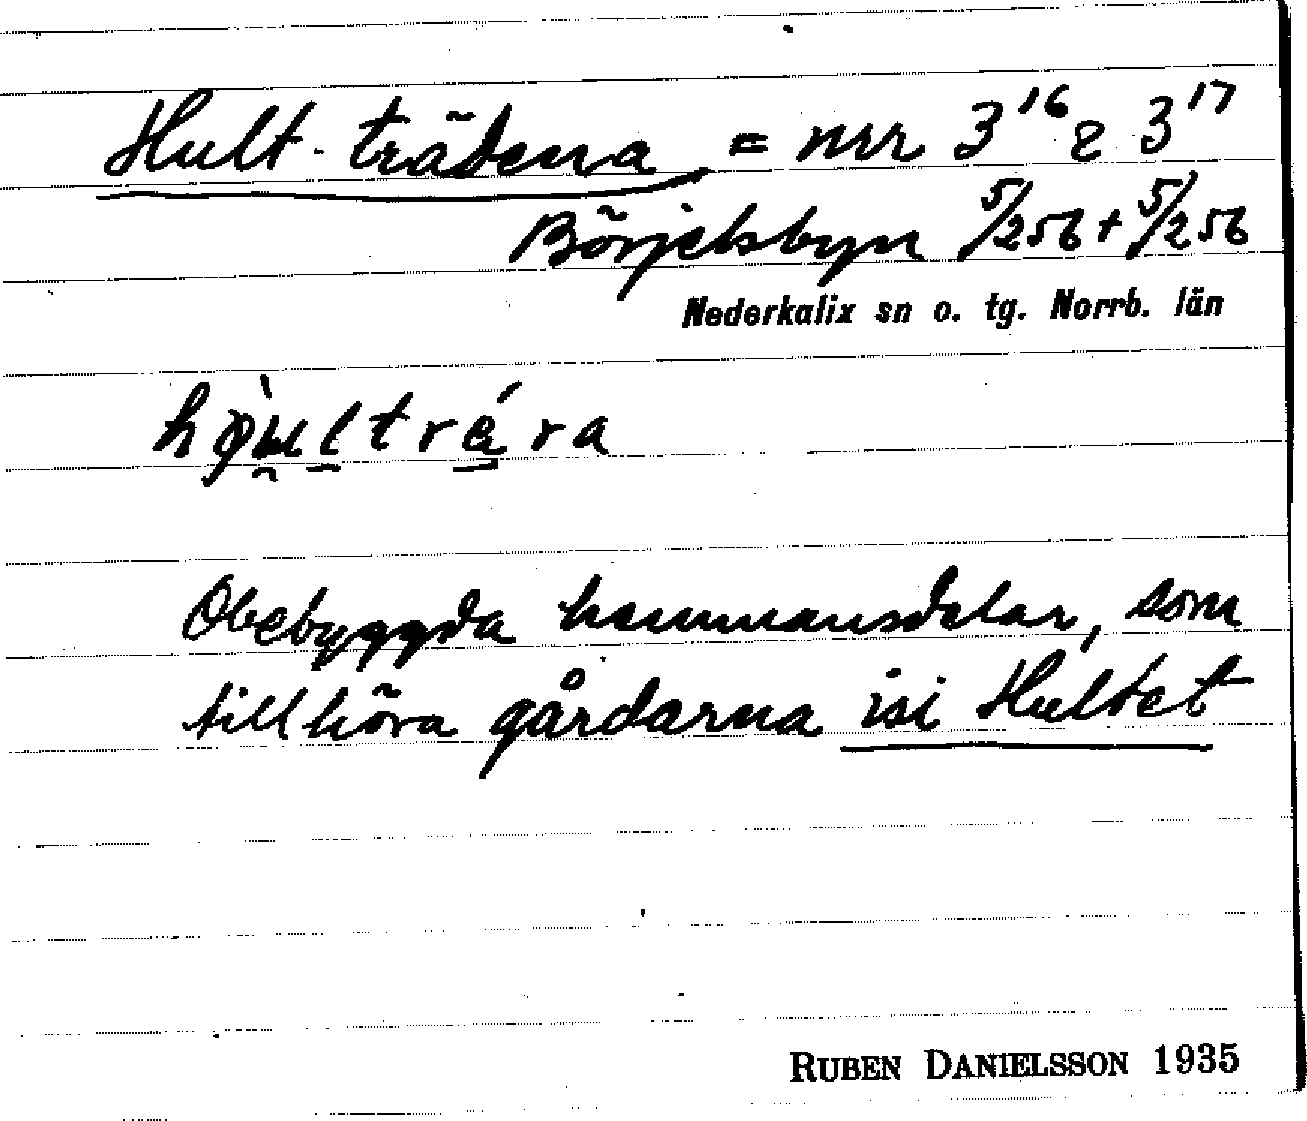 Hult-trädena = nrr 3¹⁶ & 3¹⁷
Börjelsbyn 5/256 + 5/256
Nederkalix sn o. tg. Norrb. län
Obebyggda hemmansdelar, som
tillhöra gårdarna isi Hultet
RUBEN DANIELSSON 1935